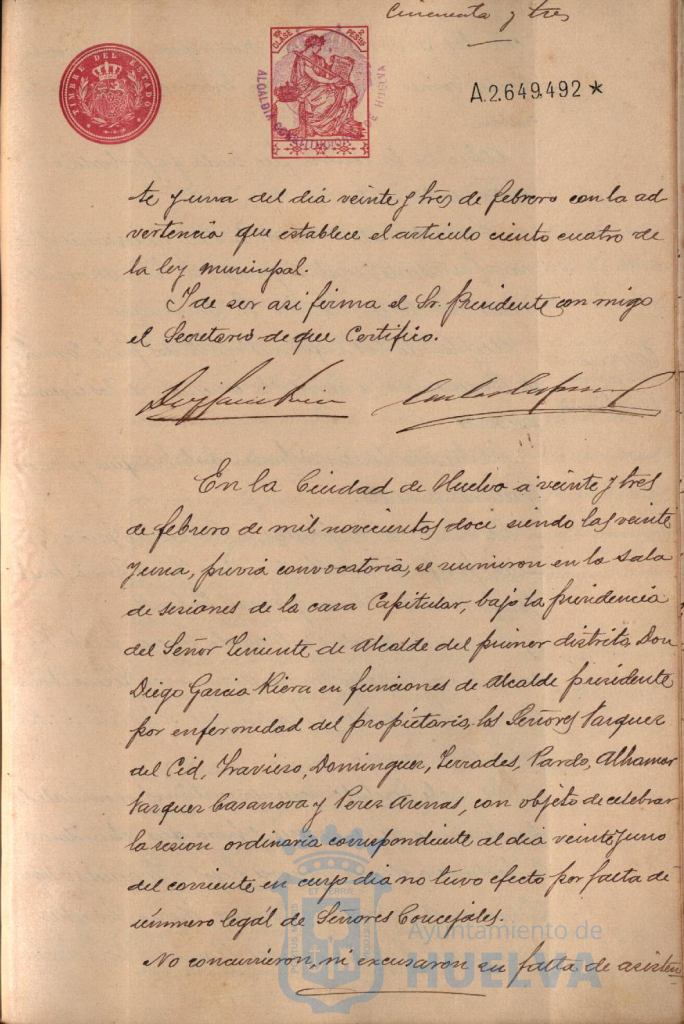 Cincuenta y tres
TIMBRE DEL ESTADO
CLASE
PESTAS
ALCALDIA
HUELVA
A.2.649.492 *
te y una del dia veinte y tres de febrero con la ad-
vertencia que establece el articulo ciento cuatro de
la ley municipal.
I de ser asi firma el Sr. Presidente con migo
el Secretario de que Certifico.
En la Ciudad de Huelva a veinte y tres
de febrero de mil novecientos doce siendo las veinte
y una, previa convocatoria, se reunieron en la sala
de sesiones de la casa Capitular, bajo la presidencia
del Señor Teniente de Alcalde del primer distrito, Don
Diego Garcia Riera en funciones de Alcalde presidente
por enfermedad del propietario, los Señores Vazquez
del Cid, Travieso, Dominguez, Terrades, Pardo, Alhamar
Vazquez Casanova y Perez Arenas, con objeto de celebrar
la sesion ordinaria correspondiente al dia veinte y uno
del corriente en cuyo dia no tuvo efecto por falta de
número legal de Señores Concejales.
No concurrieron, ni excusaron su falta de asisten
Ayuntamiento de
HUELVA